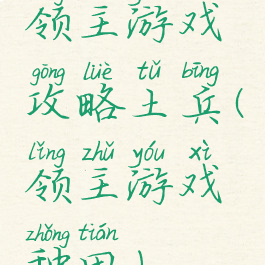 领主游戏
gōng lüè tǔ bīng
攻略土兵(
lǐng zhǔ yóu xì
领主游戏
zhǒng tián
种田)